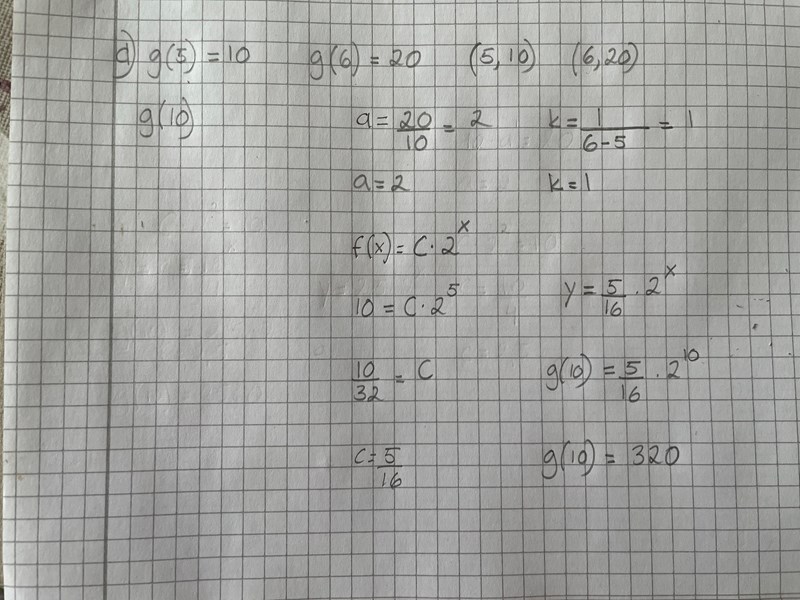 d) g(5) = 10 g(6) = 20 (5, 10) (6, 20)
g(10) a = 20/10 = 2 k = 1/(6-5) = 1
a = 2 k = 1
f(x) = C · 2^x
10 = C · 2^5 y = 5/16 · 2^x
10/32 = C g(10) = 5/16 · 2^10
C = 5/16 g(10) = 320